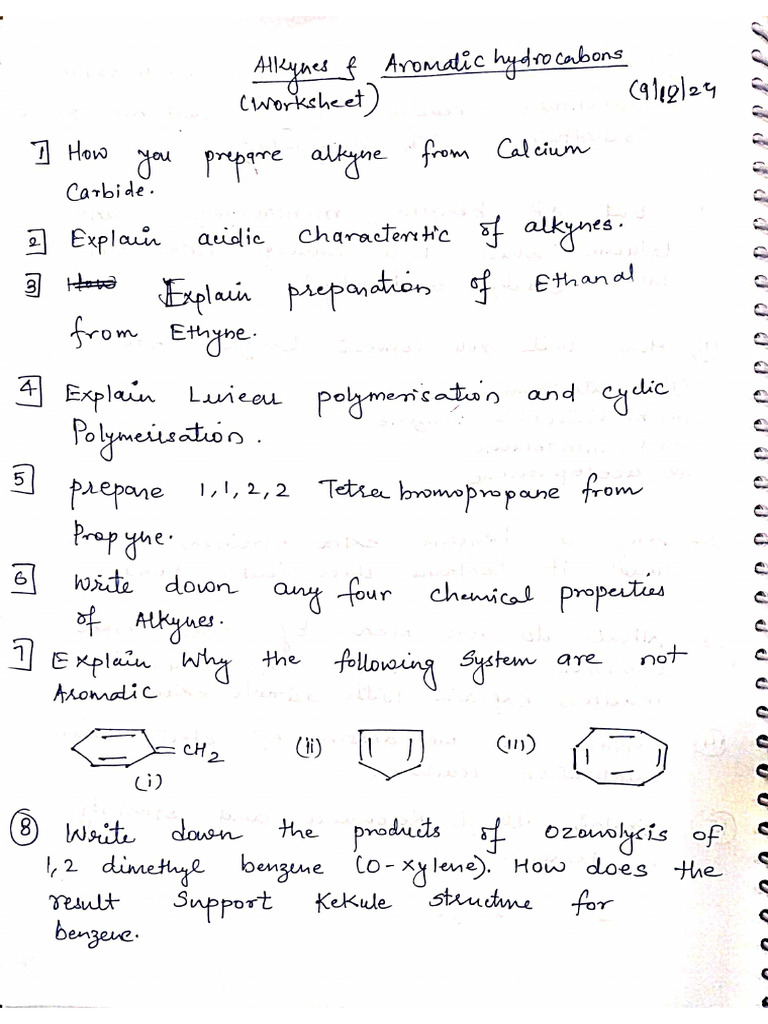 Alkynes & Aromatic hydrocabons
(Worksheet)
(9/12/24
1 How you prepare alkyne from Calcium
Carbide.
2 Explain acidic characteristic of alkynes.
3 How Explain preparation of Ethanal
from Ethyne.
4 Explain Linear polymerisation and cyclic
Polymerisation.
5 prepare 1,1,2,2 Tetra bromopropane from
Propyne.
6 Write down any four chemical properties
of Alkynes.
7 Explain Why the following System are not
Aromatic
=CH2 (ii) (III)
(i)
8 Write down the products of ozonolysis of
1,2 dimethyl benzene (O-xylene). How does the
result Support Kekule structure for
benzene.